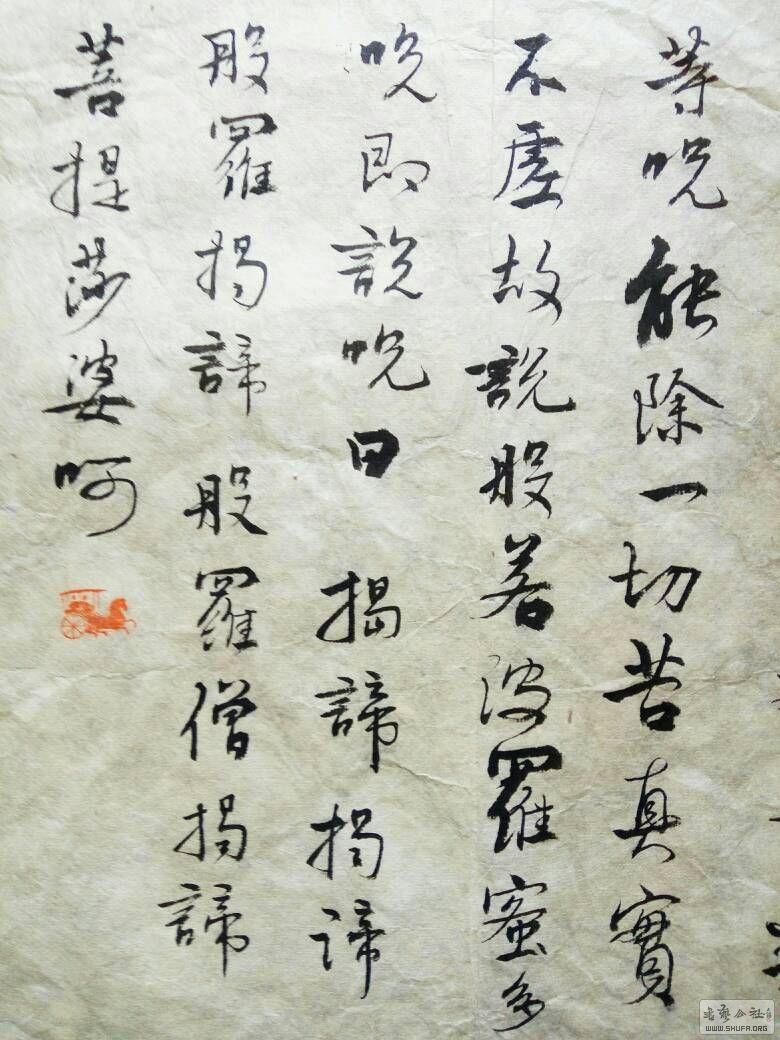 等呪能除一切苦真實
不虛故說般若波羅蜜多
呪即說呪曰 揭諦揭諦
般羅揭諦 般羅僧揭諦
菩提莎婆呵
書藝公社
WWW.SHUFA.ORG